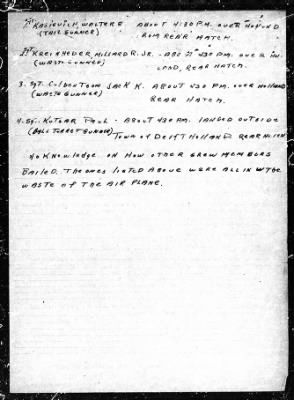 KASIEVICH, WALTER S ABOUT 4:30 P.M. OVER
(TAIL GUNNER) FROM REAR HATCH.
MILLARD R. JR. - 430 P.M. OVER
(WAIST GUNNER) REAR HATCH.
3. SGT. JACK K. ABOUT 430 P.M. OVER HOLLAND
(WAIST GUNNER) REAR HATCH.
4. SGT. KOTSAR PAUL - ABOUT 430 P.M. LANDED OUTSIDE
(BALL TURRET GUNNER) TOWN OF DELFT HOLLAND REAR
NO KNOWLEDGE ON HOW OTHER CREW MEMBERS
BAILED. THE ONES LISTED ABOVE WERE ALL IN THE
WASTE OF THE AIR PLANE.